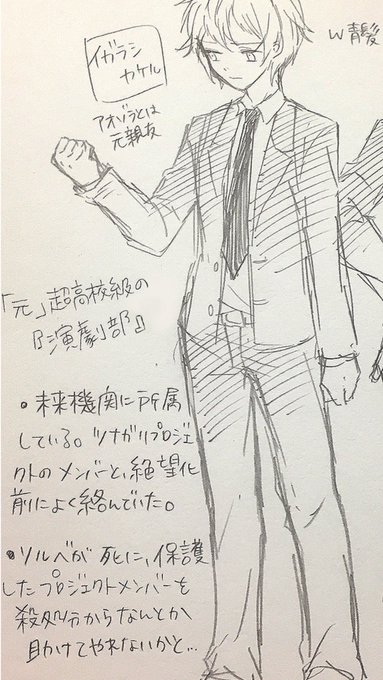 イガラシ
カケル
アオゾラとは
元親友
W青髪
「元」超高校級の
『演劇部』
・未来機関に所属
している。ツナガリプロジェ
クトのメンバーと、絶望化
前によく絡んでいた。
・ソルベが死に、保護
したプロジェクトメンバーを
殺処分からなんとか
助けてやれないかと…